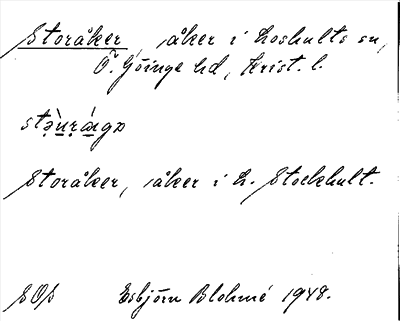 Storåker, åker i Loshults sn,
Ö. Göinge hd, Krist. l.
Storåker, åker i L. Stockhult.
SOS Esbjörn Blohmé 1948.